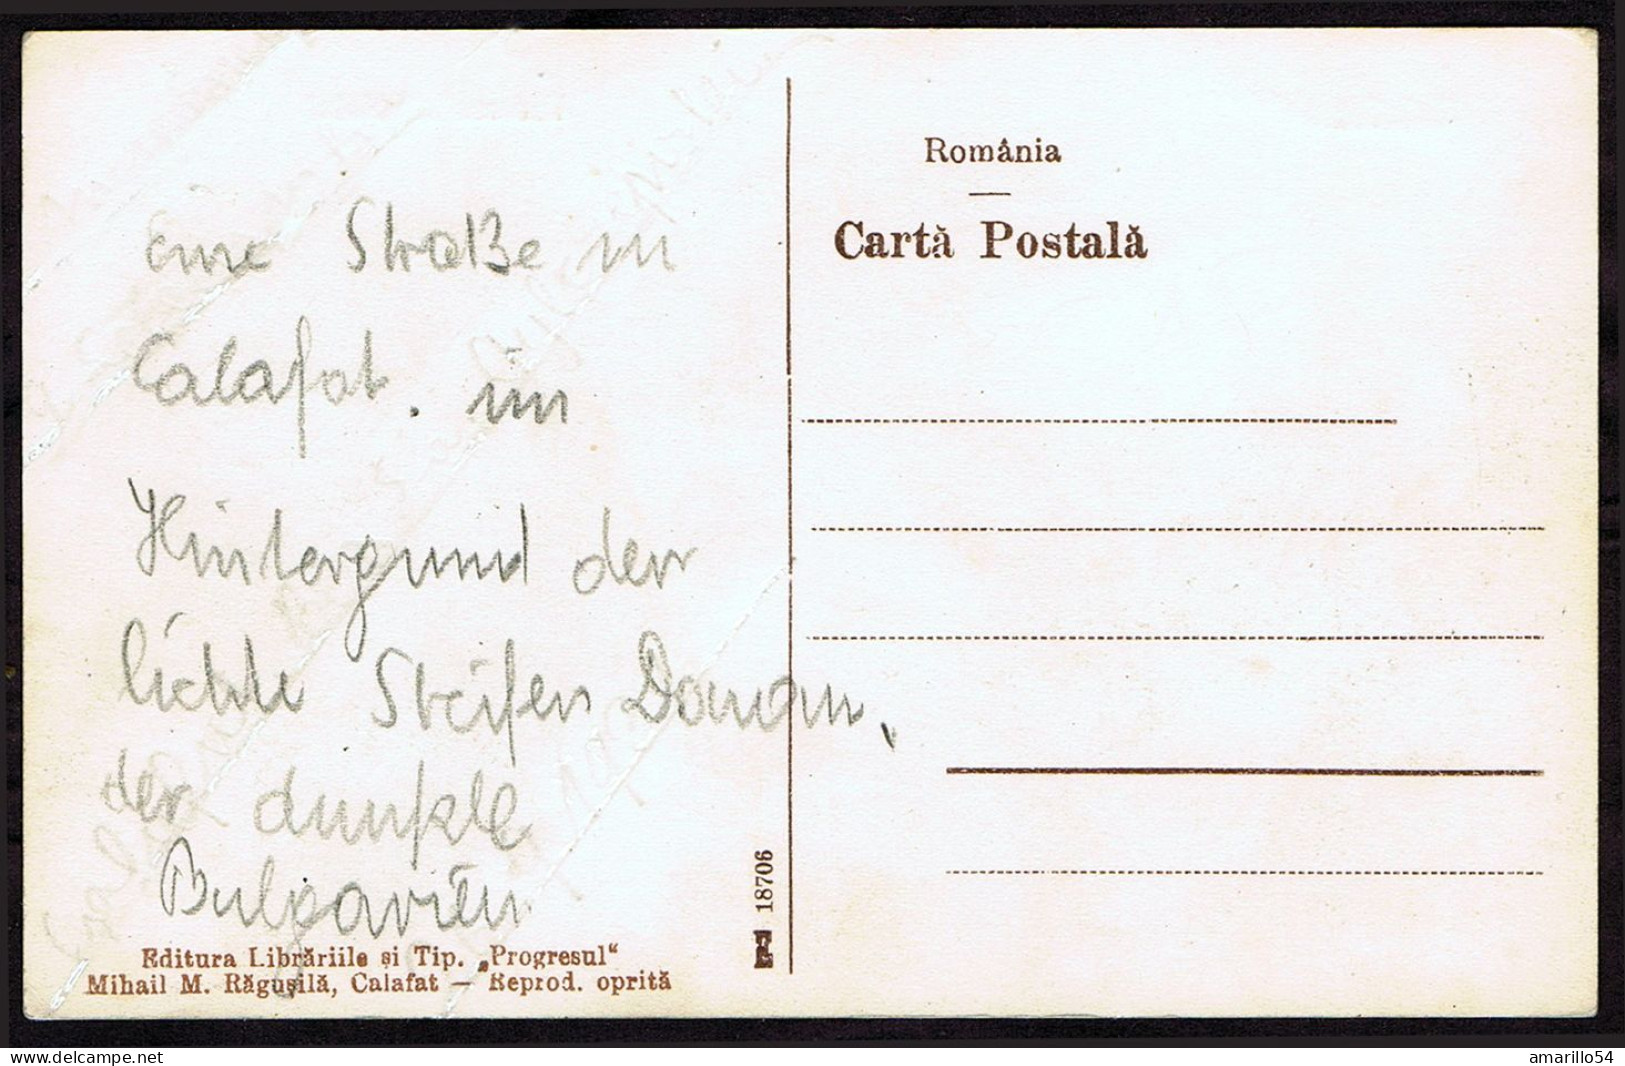 Eine Straße in
Calafat. im
Hintergrund der
lichte Streifen Donau,
der dunkle
Bulgarien
Editura Librăriile și Tip. „Progresul“
Mihail M. Răgușilă, Calafat — Reprod. oprită
18706
România
Cartă Postală
delcampe.net
amarillo54